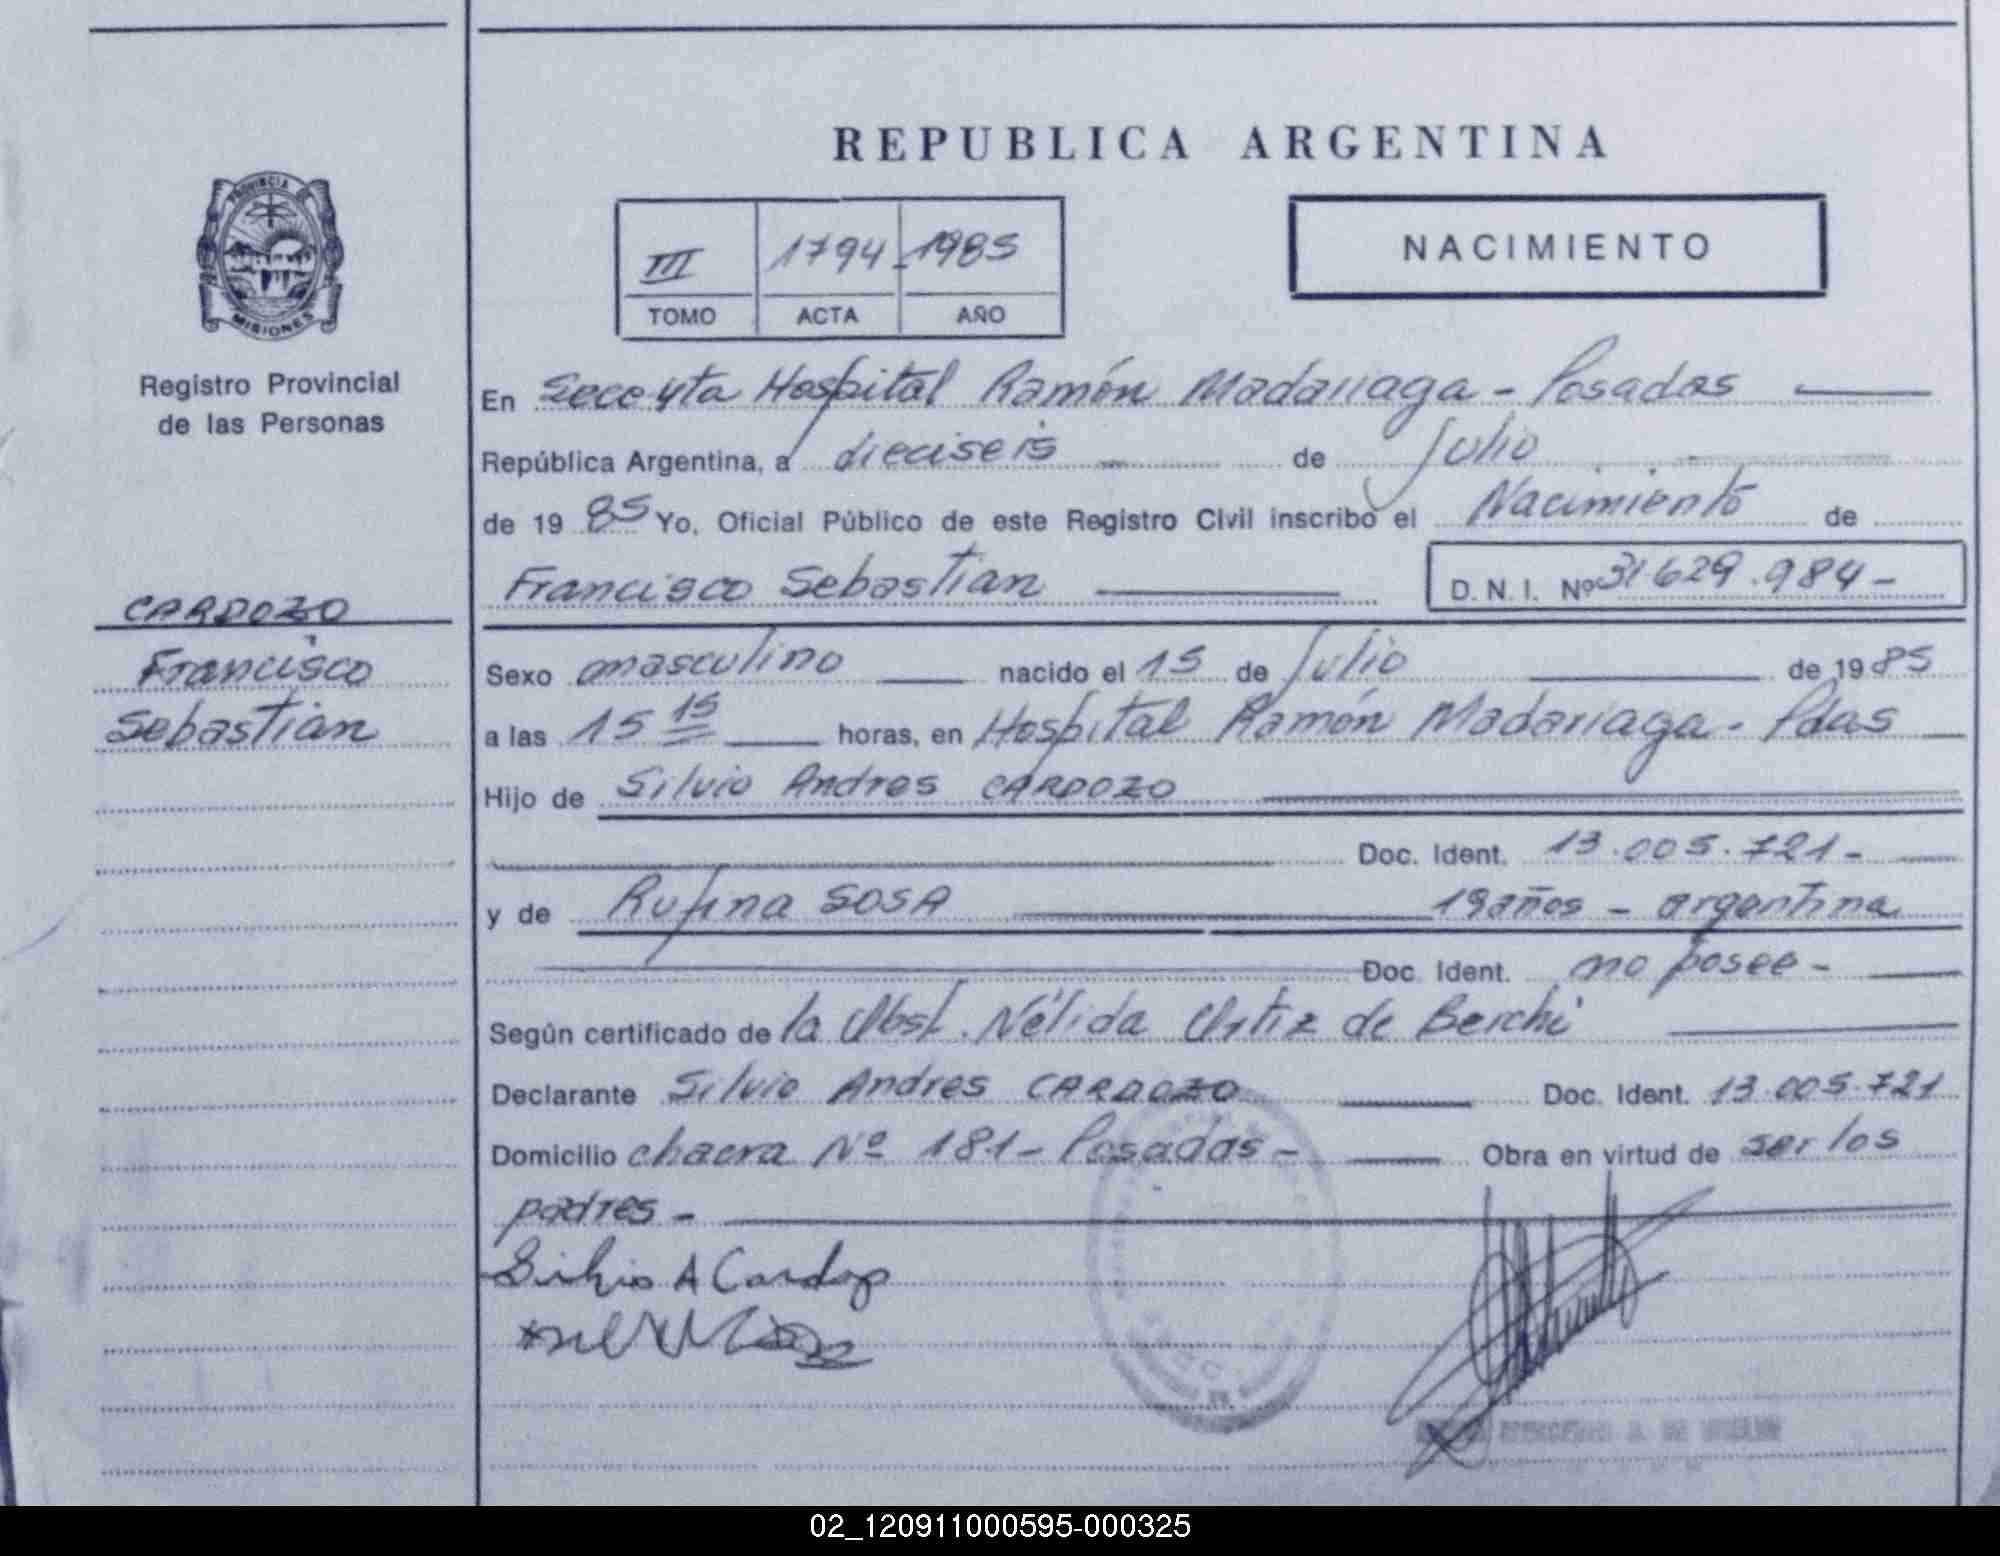 REPUBLICA ARGENTINA
PROVINCIA DE
MISIONES
Registro Provincial
de las Personas
III 1794 1985
TOMO ACTA AÑO
NACIMIENTO
En Hospital Ramón Madariaga - Posadas
República Argentina, a dieciseis de Julio
de 19 85 Yo, Oficial Público de este Registro Civil inscribo el Nacimiento de
Francisco Sebastian D. N. I. Nº 31.629.984-
CARDOZO
Francisco
Sebastian
Sexo masculino nacido el 15 de Julio de 19 85
a las 15 15 horas, en Hospital Ramón Madariaga - Pdas
Hijo de Silvio Andres CARDOZO
Doc. Ident. 13.005.721-
y de Rufina SOSA 19 años - argentina
Doc. Ident. no posee -
Según certificado de la Obst. Nélida Ortiz de Berchi
Declarante Silvio Andres CARDOZO Doc. Ident. 13.005.721
Domicilio chacra Nº 181 - Posadas - Obra en virtud de ser los
padres -
Silvio A Cardozo
02_120911000595-000325